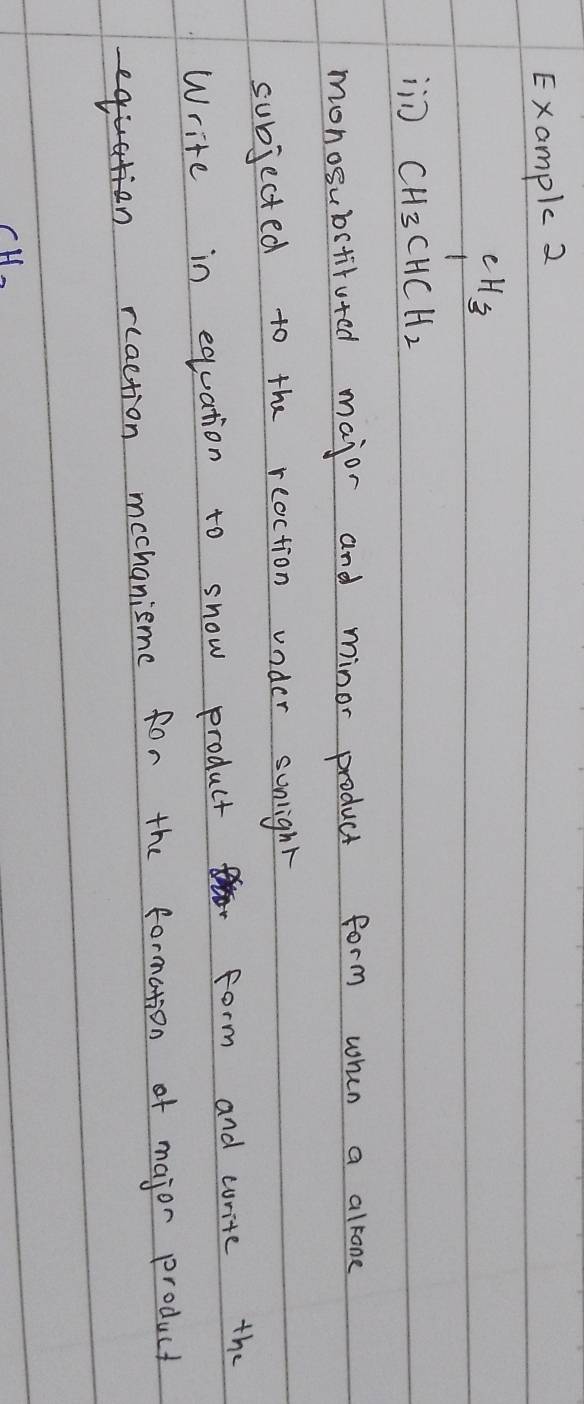 Example 2
CH3
iii) CH3CHCH2
monosubstituted major and minor product form when a alkane
subjected to the reaction under sunlight
Write in equation to show product form and write the
equation reaction mechanisme for the formation of major product